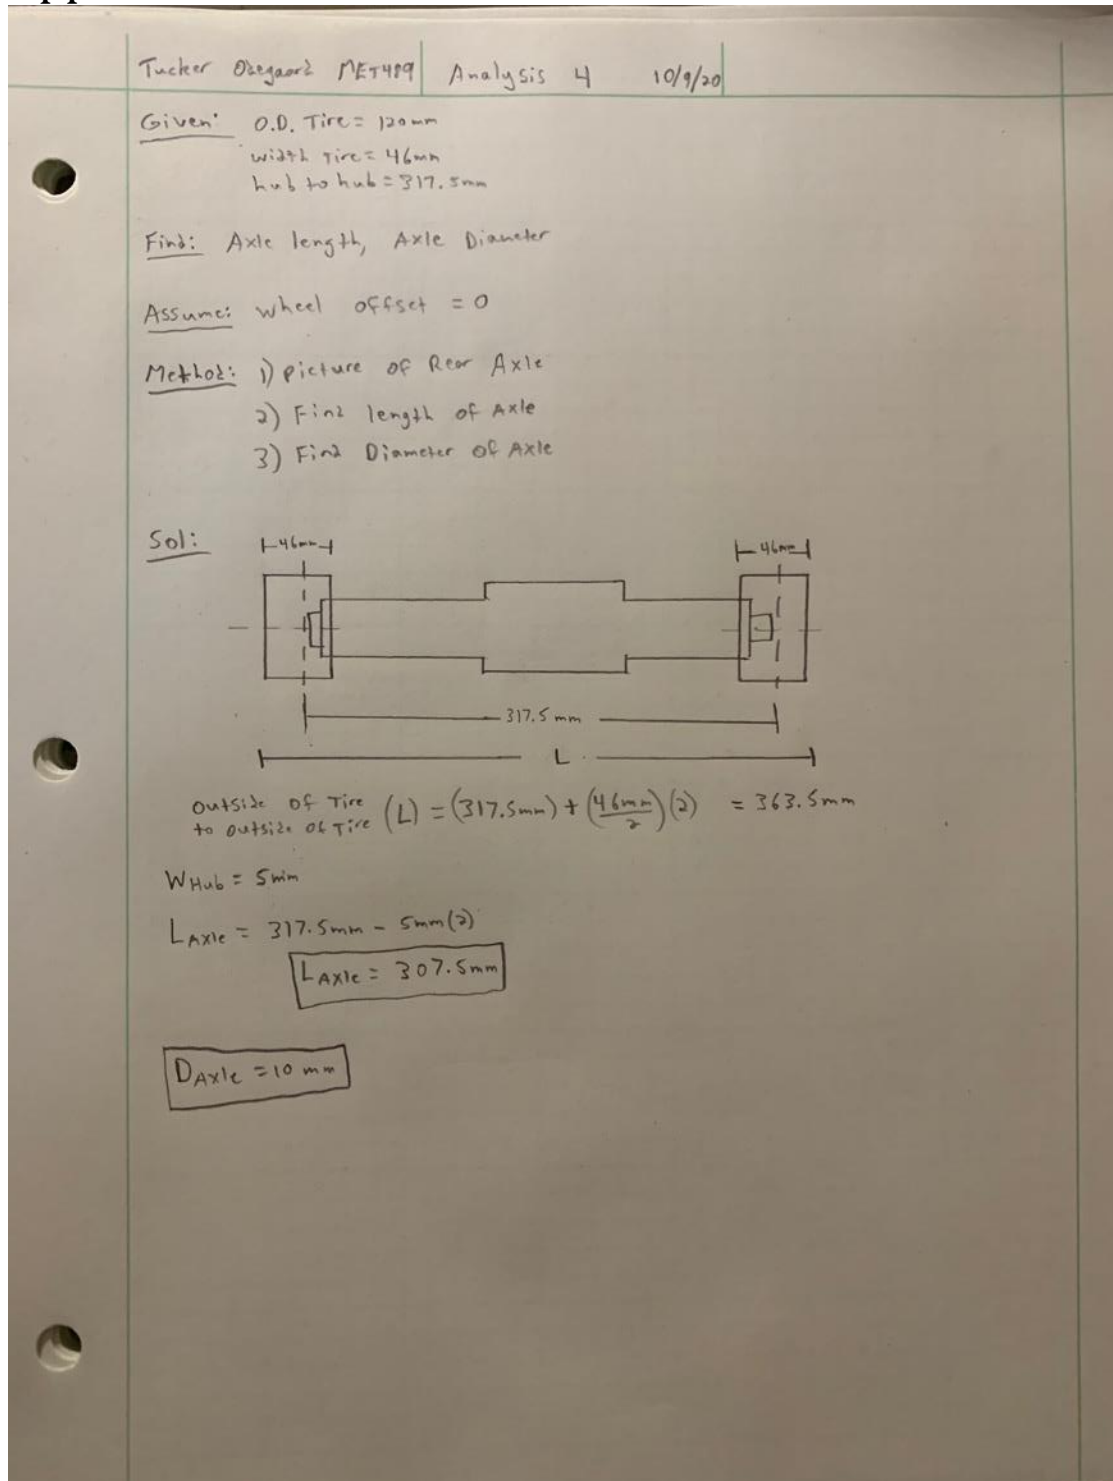 Tucker MET489 Analysis 4 10/9/20
Given: O.D. Tire = 120mm
width Tire = 46mm
hub to hub = 317.5mm
Find: Axle length, Axle Diameter
Assume: wheel offset = 0
Method: 1) picture of Rear Axle
2) Find length of Axle
3) Find Diameter of Axle
Sol:
46mm 46mm
317.5 mm
L
outside of Tire
to outside of Tire (L) = (317.5mm) + (46mm/2)(2) = 363.5mm
WHub = 5mm
LAxle = 317.5mm - 5mm(2)
LAxle = 307.5mm
DAxle = 10 mm